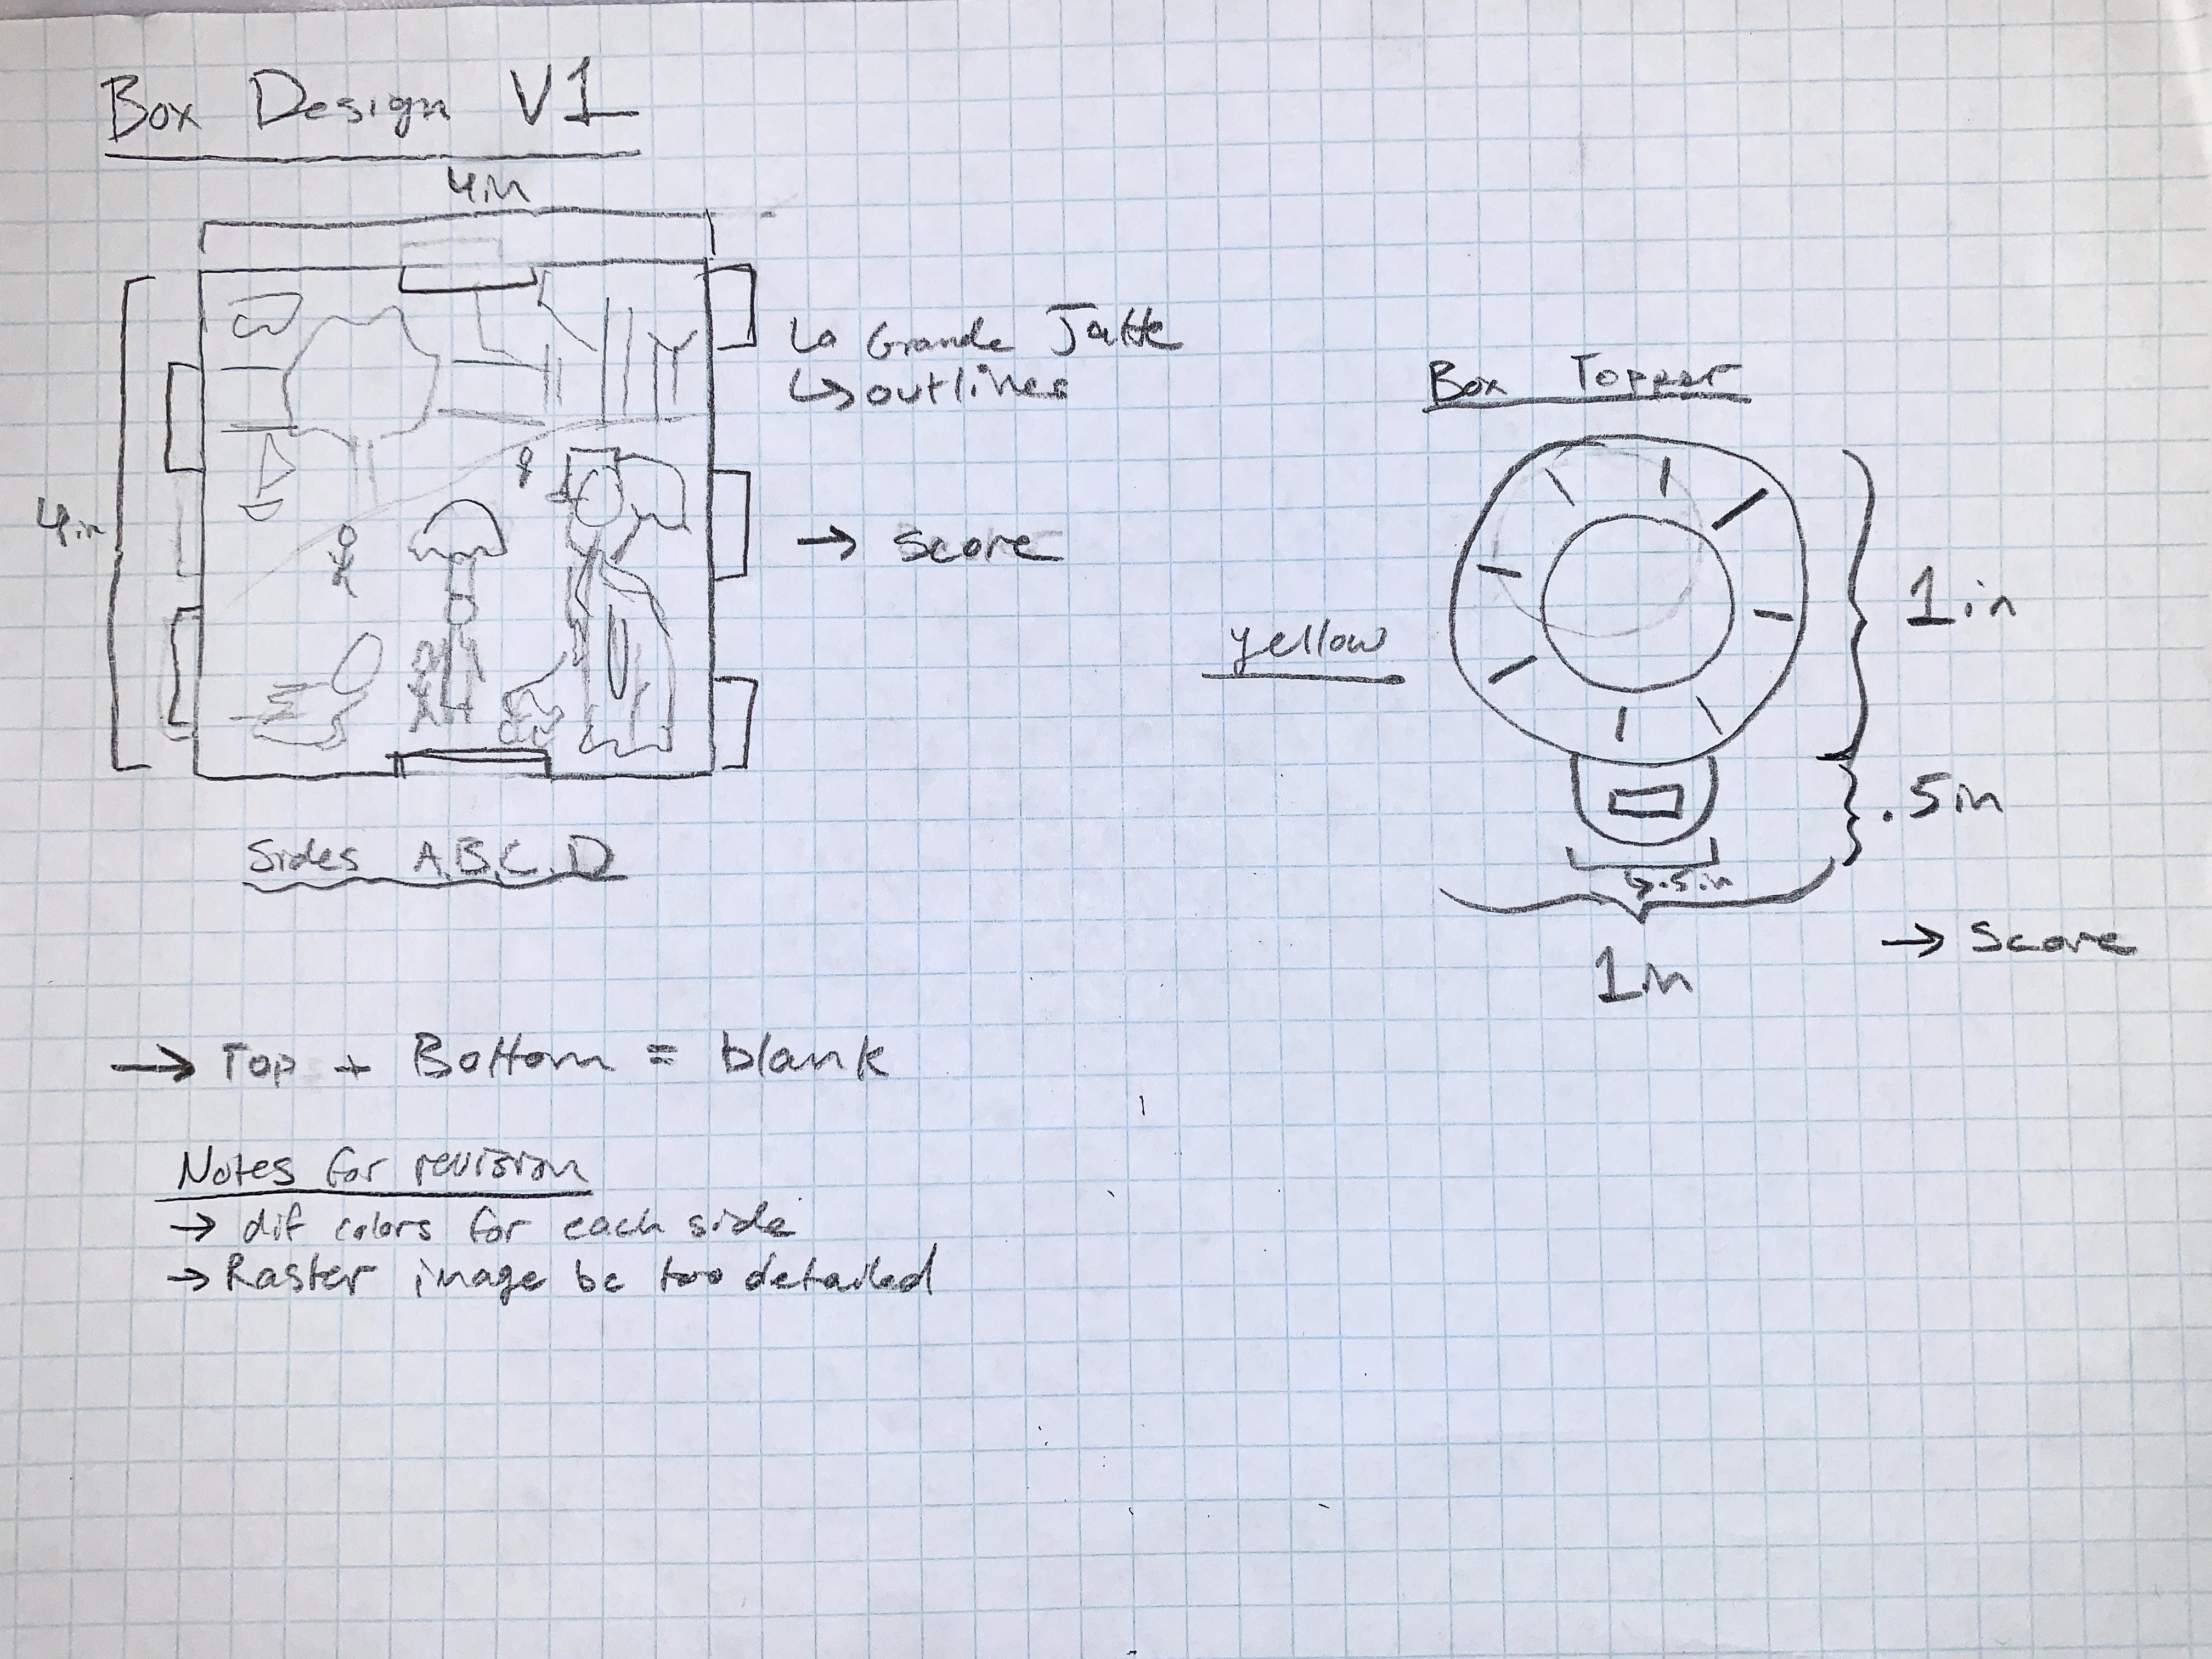 Box Design V1
4in
4in
La Grande Jatte
↳ outlines
→ Score
Sides A,B,C,D
Box Topper
yellow
1in
.5in
↳.5in
1in
→ Score
→ Top + Bottom = blank
Notes for revision
→ dif colors for each side
→ Raster image bc too detailed